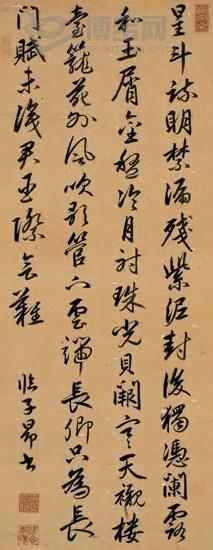 星斗疏明禁漏殘紫泥封後獨憑闌露
和玉屑金盤冷月射珠光貝闕寒天襯樓
臺籠苑外風吹歌管下雲端長卿只為長
門賦未識君臣際會難 臨子昂書